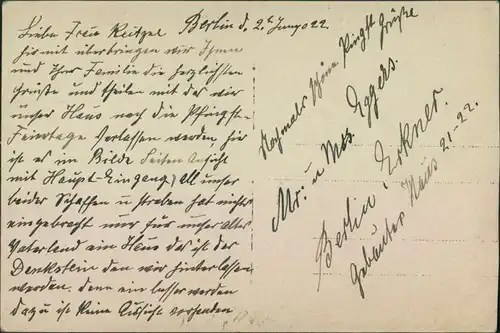 Liebe Frau Reitzel Berlin d. 2t Juny 22.
hir mit überbringen wir Ihnen
und Ihrer Familie die herzlichsten
Grüße und theilen mit das wir
unser Haus nach die Pfingst-
Feiertage verlassen werden hir
ist es im Bilde Seiten Ansicht
mit Haupt-Eingang) All unser
beider Schaffen u streben hat nichts
eingebracht nur für unser altes
Vaterland ein Haus das ist der
Denkstein den wir hinterlassen
werden, denn ein besser werden
dazu ist keine Aussicht vorhanden
Nochmals schöne Pingst Grüße
Mr: u Mrs. Eggers.
Berlin, Erkner.
Gebautes Haus 21-22.